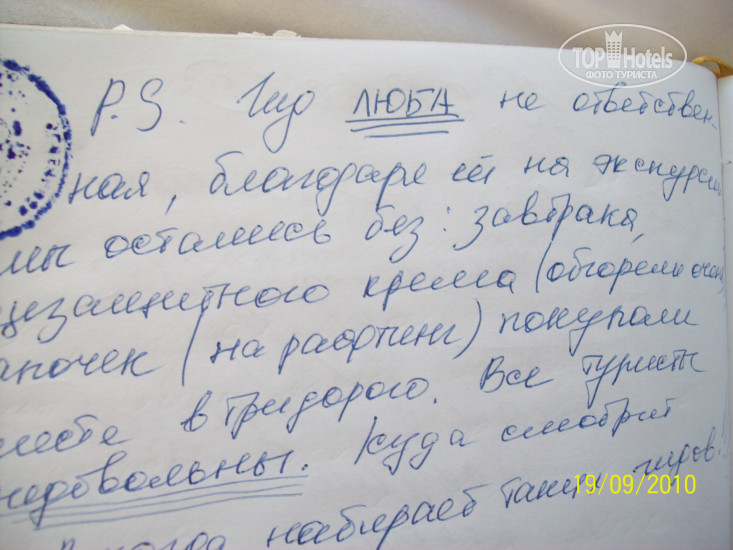 TOP Hotels
ФОТО ТУРИСТА
P.S. Гид ЛЮБА не ответствен-
ная, благодаря ей на экскурсии
мы остались без: завтрака,
цезащитного крема (обгорели очень)
апочек (на рафтинг) покупали
месте в тридорого. Все туристы
недовольны. Куда смотрит
когда набирает таких гидов.
19/09/2010